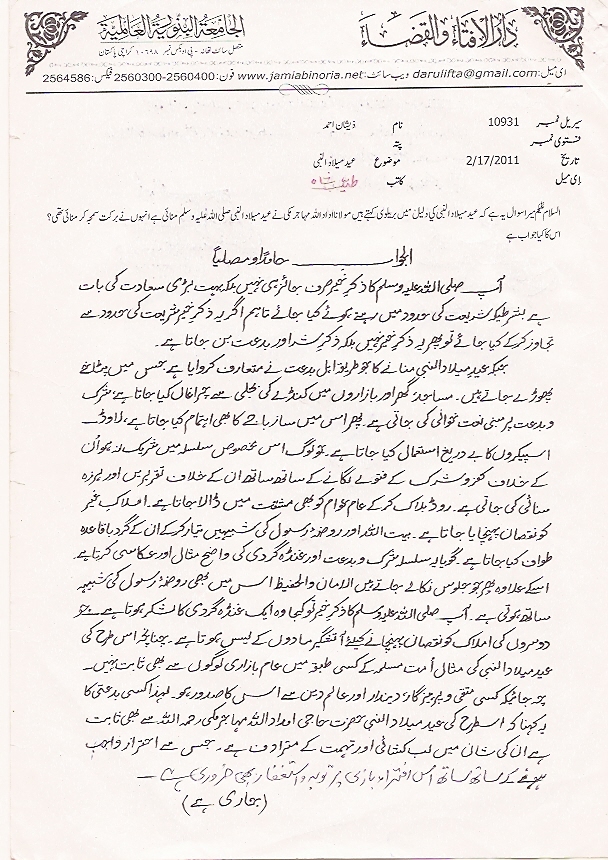 دار الافتاء والقضاء
الجامعة البنورية العالمية
متصل سائٹ تھانہ - پی او بکس نمبر ۱۰۶۹۸ کراچی پاکستان
ای میل: darulifta@gmail.com ویب سائٹ: www.jamiabinoria.net فون: 2560300-2560400 فیکس: 2564586
سیریل نمبر 10931 نام ذیشان احمد
فتوی نمبر پتہ
تاریخ 2/17/2011 موضوع عید میلاد النبی
ای میل کاتب
السلام علیکم میرا سوال یہ ہے کہ عید میلاد النبی کی دلیل میں بریلوی کہتے ہیں مولانا امداد اللہ مہاجر مکی نے عید میلاد النبی صلی اللہ علیہ وسلم منائی ہے انہوں نے برکت سمجھ کر منائی تھی؟
اس کا کیا جواب ہے
الجواب حامدا و مصلیا
آپ صلی اللہ علیہ وسلم کا ذکر خیر صرف جائز ہی نہیں بلکہ بہت بڑی سعادت کی بات
ہے بشرطیکہ شریعت کی حدود میں رہتے ہوئے کیا جائے تاہم اگر یہ ذکر خیر شریعت کی حدود سے
تجاوز کر کے کیا جائے تو پھر یہ ذکر خیر نہیں بلکہ ذکر شر اور بدعت بن جاتا ہے۔
جبکہ عید میلاد النبی منانے کا جو طریقہ اہل بدعت نے متعارف کروایا ہے جس میں پٹاخے
چھوڑے جاتے ہیں۔ مساجد، گھر اور بازاروں میں کنڈے کی بجلی سے چراغاں کیا جاتا ہے، شرک
و بدعت پر مبنی نعت خوانی کی جاتی ہے پھر اس میں ساز باجے کا بھی اہتمام کیا جاتا ہے، لاؤڈ
اسپیکروں کا بے دریغ استعمال کیا جاتا ہے۔ جو لوگ اس مخصوص سلسلہ میں شریک نہ ہو ان
کے خلاف کفر و شرک کے فتوے لگانے کے ساتھ ساتھ ان کے خلاف تقریریں اور ہرزہ
سرائی کی جاتی ہے۔ روڈ بلاک کر کے عام عوام کو بھی مشقت میں ڈالا جاتا ہے۔ املاک غیر
کو نقصان پہنچایا جاتا ہے۔ بیت اللہ اور روضۂ رسول کی شبیہیں تیار کر کے ان کے گرد باقاعدہ
طواف کیا جاتا ہے۔ گویا یہ سلسلہ شرک و بدعت اور غنڈہ گردی کی واضح مثال اور عکاسی کرتا ہے
اسکے علاوہ پھر جو جلوس نکالے جاتے ہیں الامان والحفیظ اس میں بھی روضۂ رسول کی شبیہ
ساتھ ہوتی ہے۔ آپ صلی اللہ علیہ وسلم کا ذکر خیر تو کجا وہ ایک غنڈہ گردی کا لشکر ہوتا ہے جو
دوسروں کی املاک کو نقصان پہنچانے کیلئے آتشگیر مادوں کے لیس ہوتا ہے۔ چنانچہ اس طرح کی
عید میلاد النبی کی مثال امت مسلمہ کے کسی طبقہ میں عام بازاری لوگوں سے بھی ثابت نہیں۔
چہ جائیکہ کسی متقی و پرہیزگار، دیندار اور عالم دین سے اس کا صدور ہو۔ لہذا کسی بدعتی کا
یہ کہنا کہ اسطرح کی عید میلاد النبی حضرت حاجی امداد اللہ مہاجر مکی رحمہ اللہ سے بھی ثابت
ہے ان کی شان میں لب کشائی اور تہمت کے مترادف ہے۔ جس سے احتراز واجب
ہونے کے ساتھ ساتھ اس افتراء بازی پر توبہ و استغفار بھی ضروری ہے۔
(جاری ہے)